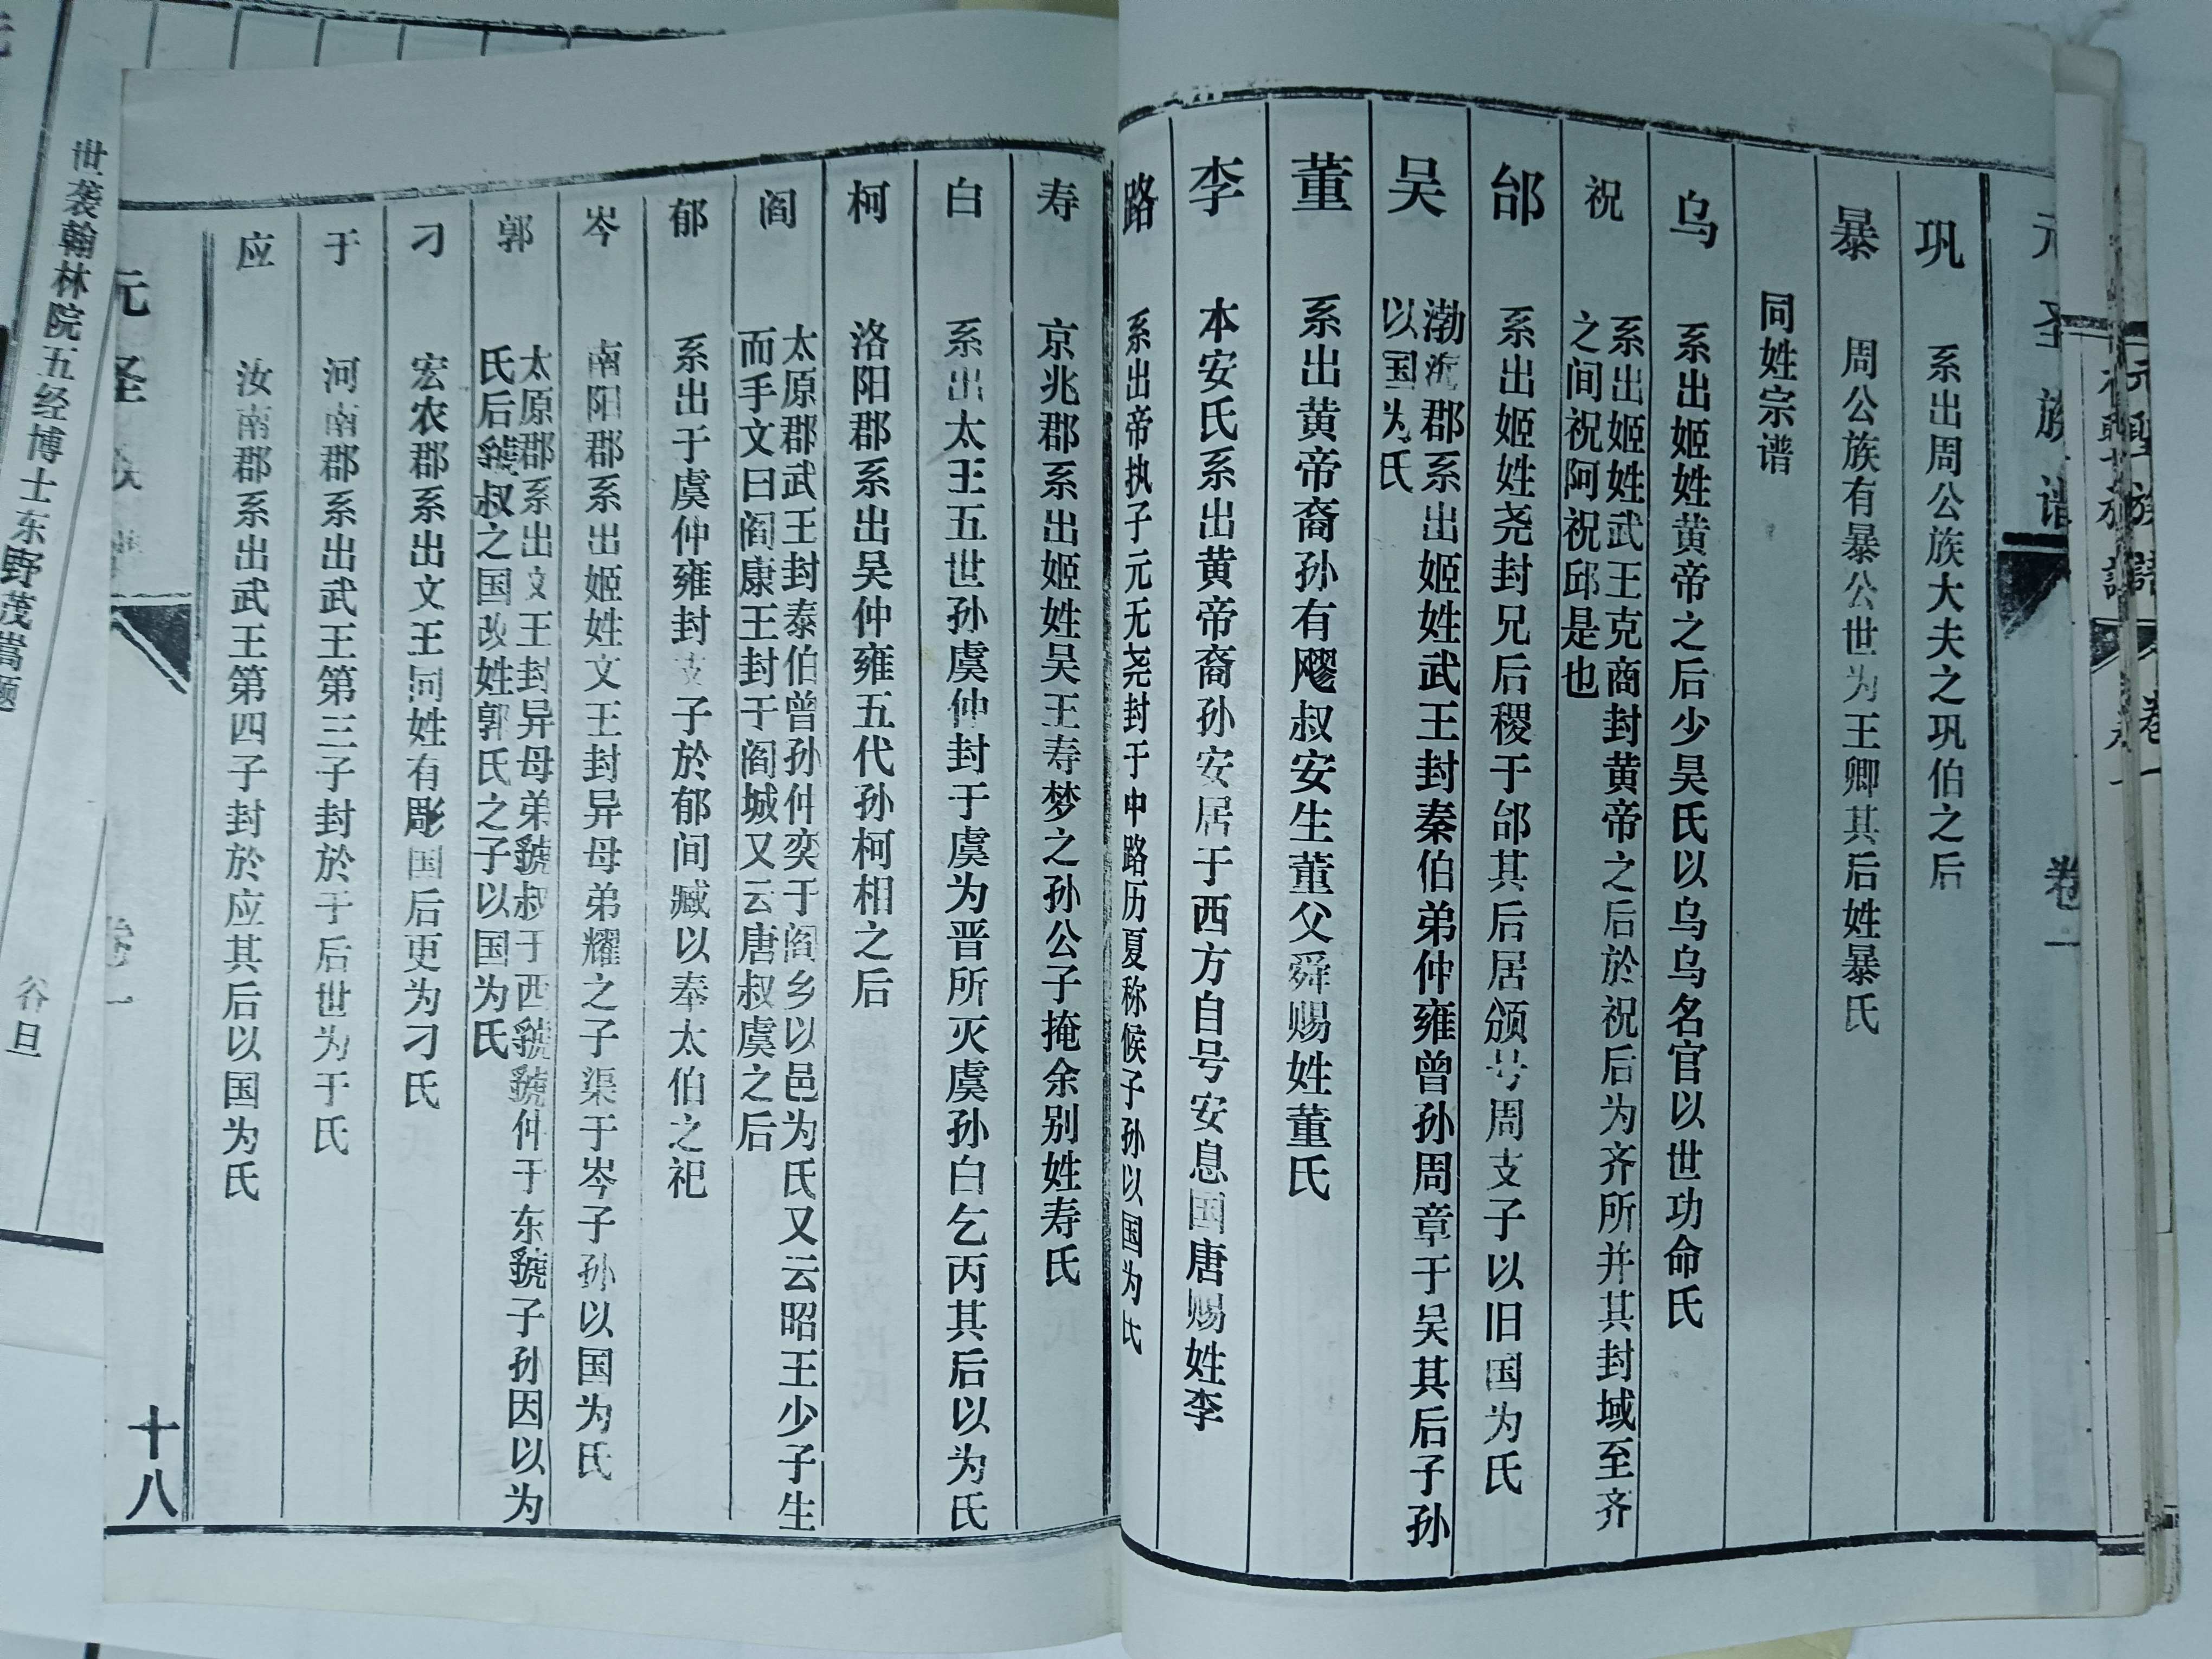 元圣族谱 卷一
巩 系出周公族大夫之巩伯之后
暴 周公族有暴公世为王卿其后姓暴氏
同姓宗谱
乌 系出姬姓黄帝之后少吴氏以乌乌名官以世功命氏
祝 系出姬姓武王克商封黄帝之后於祝后为齐所并其封域至齐
之间祝阿祝邱是也
邰 系出姬姓尧封兄后稷于邰其后居颁号周支子以旧国为氏
吴 渤海郡系出姬姓武王封秦伯弟仲雍曾孙周章于吴其后子孙
以国为氏
董 系出黄帝裔孙有飂叔安生董父舜赐姓董氏
李 本安氏系出黄帝裔孙安居于西方自号安息国唐赐姓李
路 系出帝执子元无尧封于中路历夏称候子孙以国为氏
寿 京兆郡系出姬姓吴王寿梦之孙公子掩余别姓寿氏
白 系出太王五世孙虞仲封于虞为晋所灭虞孙白乞丙其后以为氏
柯 洛阳郡系出吴仲雍五代孙柯相之后
阎 太原郡武王封泰伯曾孙仲奕于阎乡以邑为氏又云昭王少子生
而手文曰阎康王封于阎城又云唐叔虞之后
郁 系出于虞仲雍封支子於郁间臧以奉太伯之祀
岑 南阳郡系出姬姓文王封异母弟耀之子渠于岑子孙以国为氏
郭 太原郡系出文王封异母弟虢叔于西虢虢仲于东虢子孙因以为
氏后虢叔之国改姓郭氏之子以国为氏
刁 宏农郡系出文王同姓有彫国后更为刁氏
于 河南郡系出武王第三子封於于后世为于氏
应 汝南郡系出武王第四子封於应其后以国为氏
元圣 卷一
十八
世袭翰林院五经博士东野茂嵩题
谷旦
元聖族譜 卷一